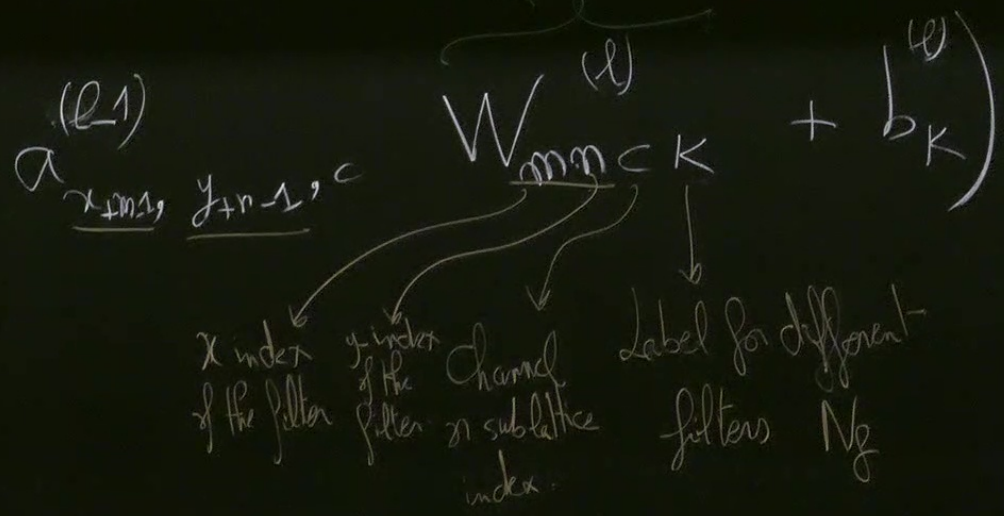 a^(l-1)_{x+m-1, y+n-1, c} W^(l)_{mnck} + b^(l)_k )
x index of the filter
y-index of the filter
Channel or sublattice index.
Label for different filters Nf